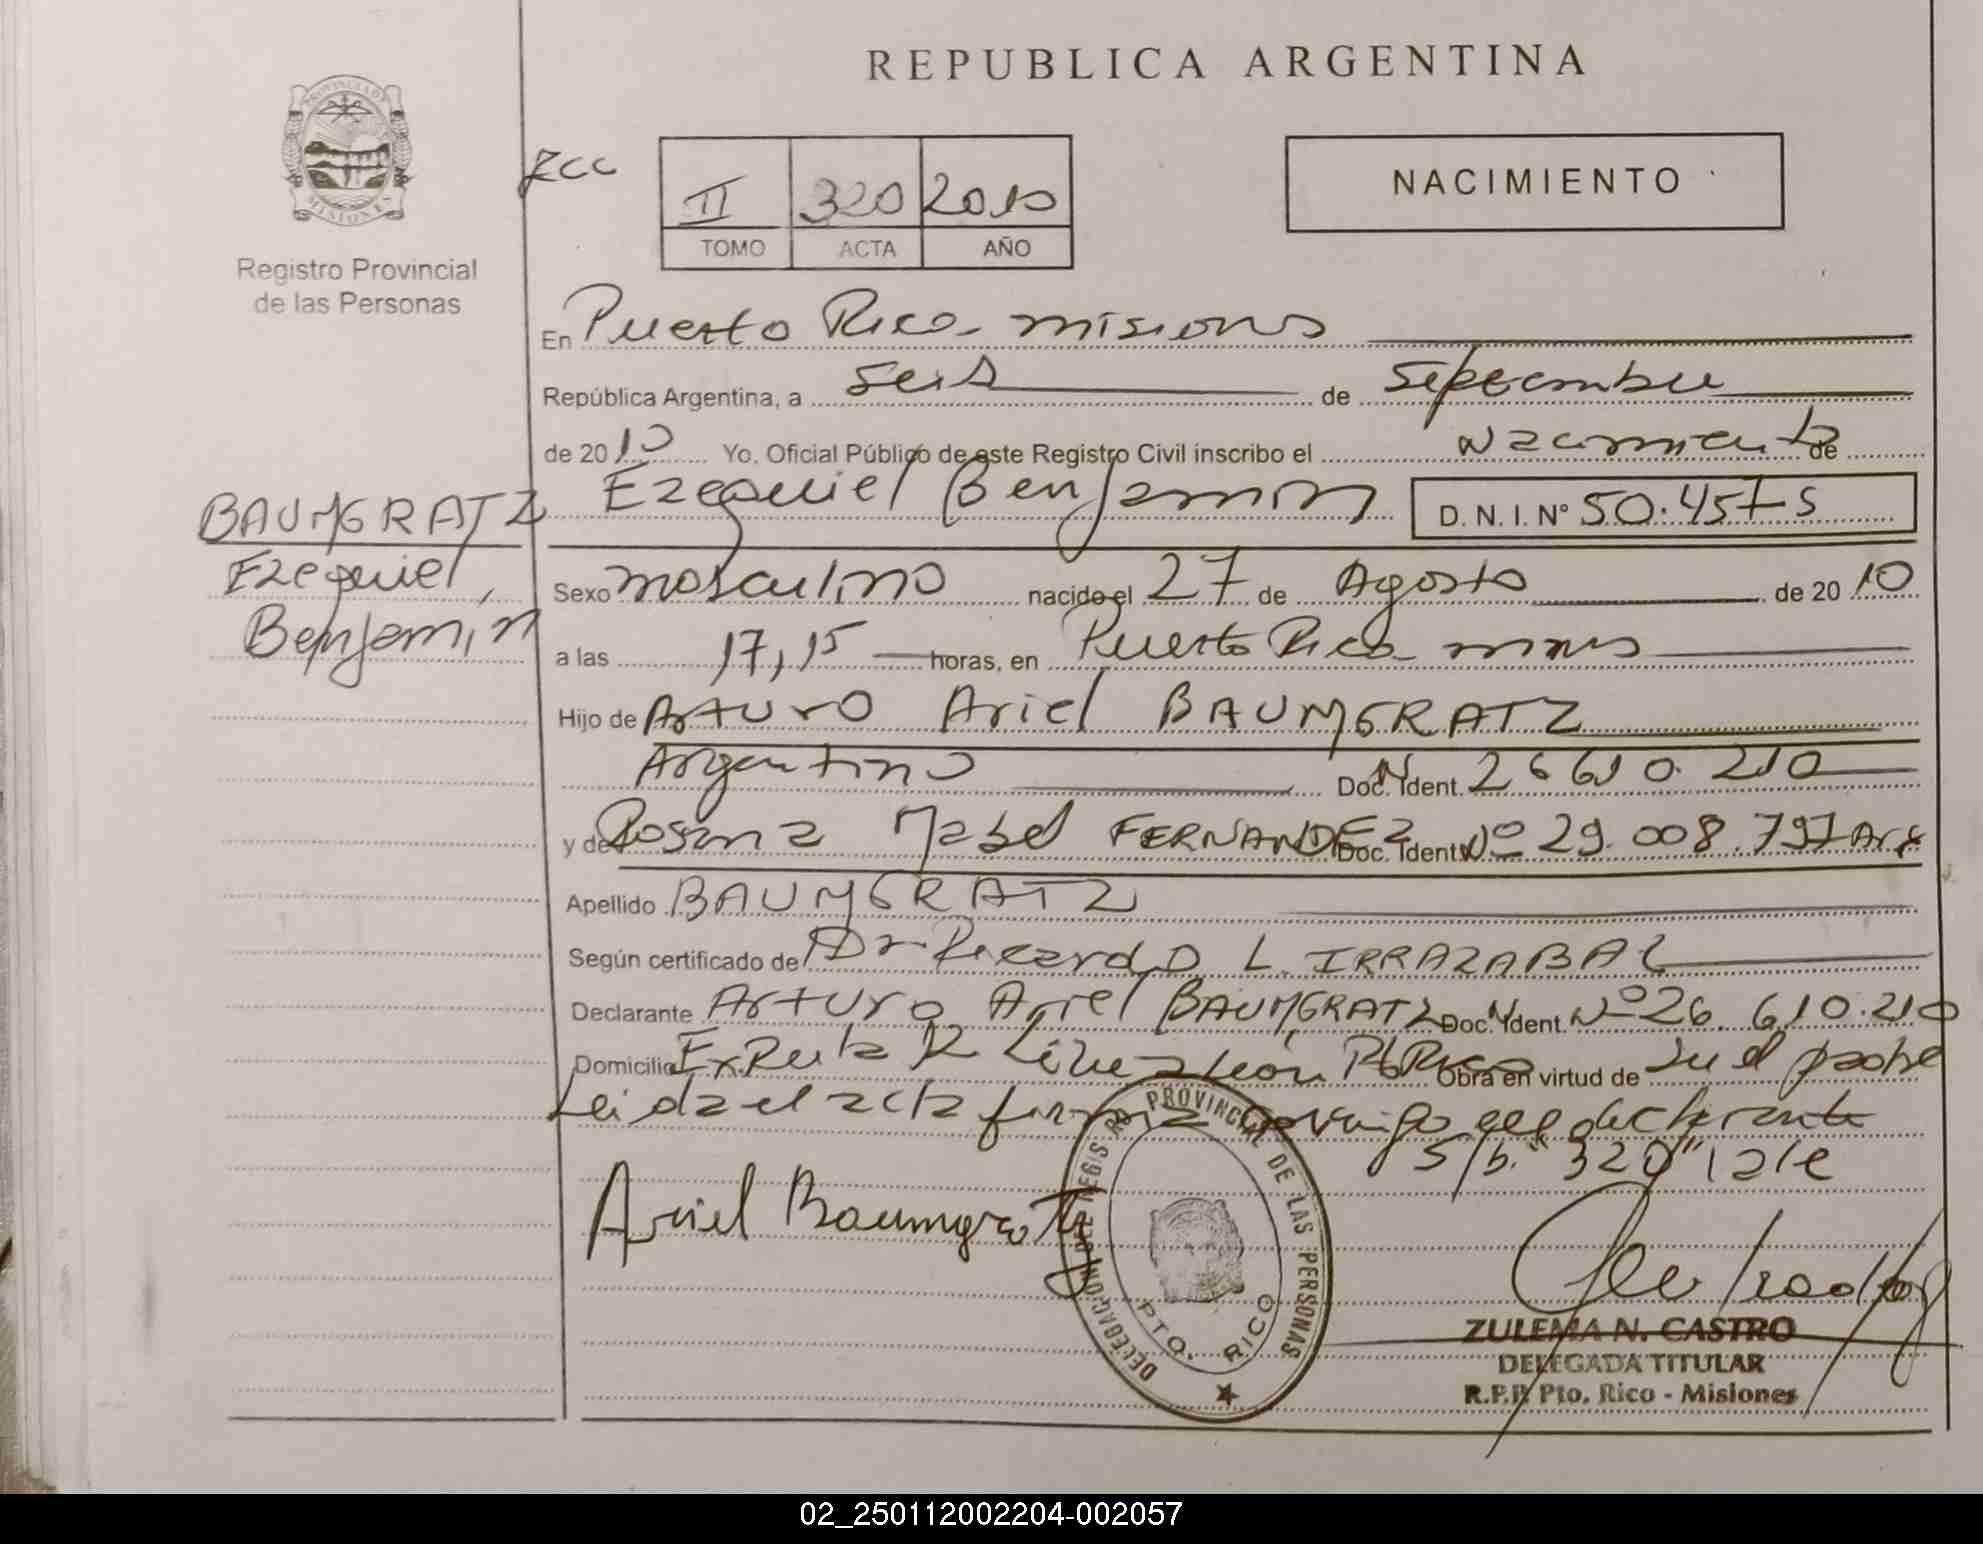 REPUBLICA ARGENTINA
PROVINCIA DE MISIONES
Registro Provincial
de las Personas
II 320 2010
TOMO ACTA AÑO
NACIMIENTO
En Puerto Rico misiones
República Argentina, a seis de septiembre
de 2010 Yo, Oficial Público de este Registro Civil inscribo el nacimiento de
Ezequiel Benjamin D. N. I. Nº 50.457
BAUMGRATZ
Ezequiel,
Benjamin
Sexo masculino nacido el 27 de Agosto de 2010
a las 17,15 horas, en Puerto Rico mnes
Hijo de Arturo Ariel BAUMGRATZ
Argentino Doc. Ident. Nº 26 610.210
y de Rosana Mabel FERNANDEZ Doc. Ident. Nº 29.008.797 Arg
Apellido BAUMGRATZ
Según certificado de Dr Ricardo L. IRRAZABAL
Declarante Arturo Ariel BAUMGRATZ Doc. Ident. Nº 26.610.210
Domicilio Ex Ruta 12 Liberación Pto Rico Obra en virtud de su el padre
Leida el acta firma conmigo el declarante
S/b. "320" vale
Ariel Baumgratz
DELEGACION DE REGISTRO PROVINCIAL DE LAS PERSONAS
PTO. RICO
ZULEMA N. CASTRO
DELEGADA TITULAR
R.P.P. Pto. Rico - Misiones
02_250112002204-002057